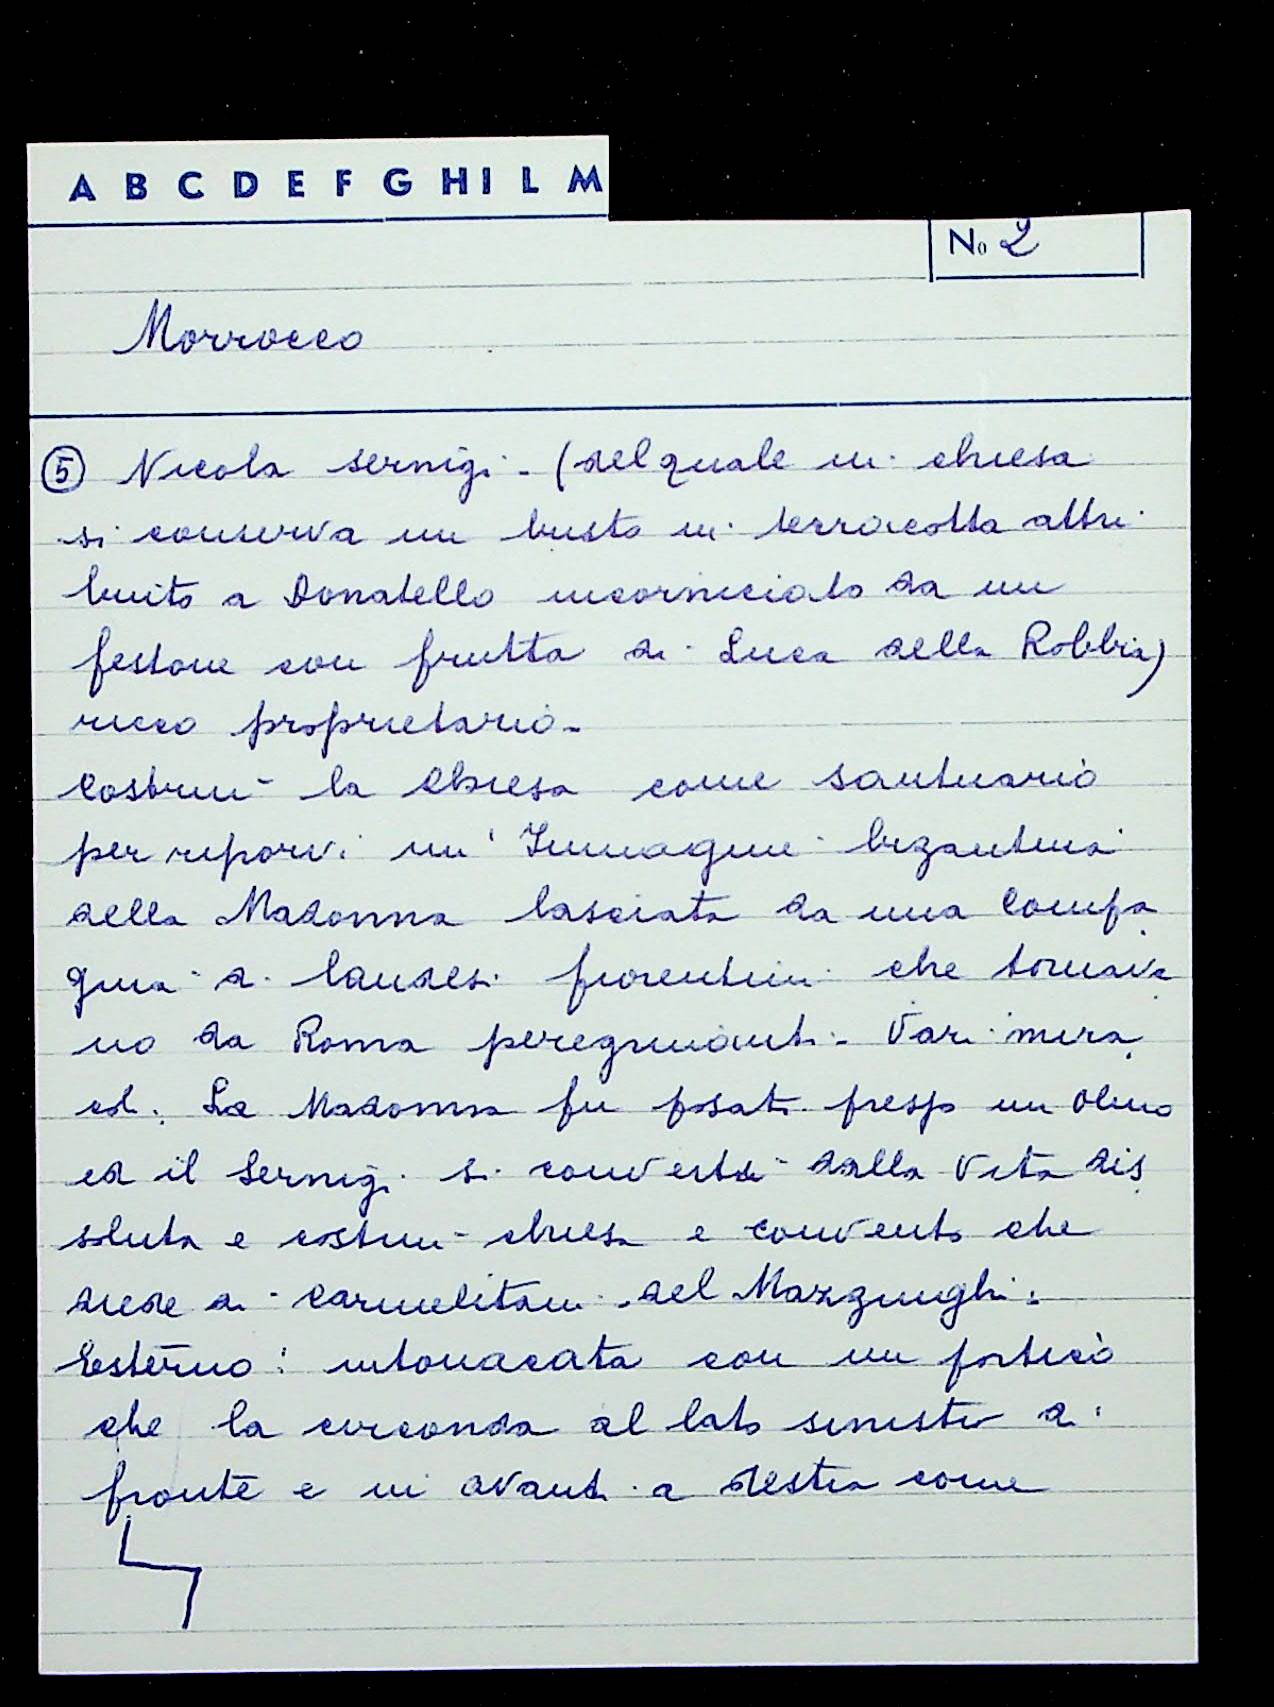 A B C D E F G H I L M
No 2
Morrocco
⑤ Nicola Sernigi - (del quale in chiesa
si conserva un busto in terracotta attri
buito a Donatello incorniciato da un
festone con frutta di Luca della Robbia)
ricco proprietario -
Costruì la Chiesa come santuario
per riporvi un' Immagine bizantina
della Madonna lasciata da una Compa
gnia di laudesi fiorentini che tornava
no da Roma peregrinanti - Vari mira
coli. La Madonna fu posata presso un Olmo
ed il Sernigi si convertì dalla vita dis
soluta e costruì chiesa e convento che
diede ai Carmelitani del Mazzinghi.
Esterno: intonacata con un portico
che la circonda al lato sinistro di
fronte e in avanti a destra come